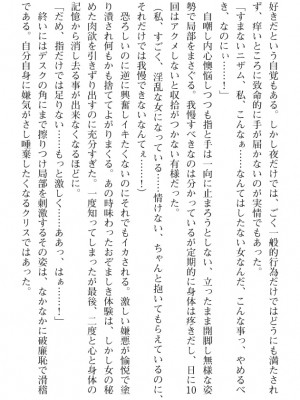 好きだという自覚もある。しかし夜だけでは、ごく一般的行為だけではどうにも満たされ
ず、痒いところに致命的に手が届かないのが実情でもあった。
「すまないニザム、私、こんなぁ……なんてはしたない女なんだ、こんな事っ、やめるべ
き、なのにぃ……！」
自嘲し内心懊悩しつつも指と手は一向に止まろうとしない。立ったまま開脚し無様な姿
勢で局部をまさぐる。我慢すべきなのは分かっているが定期的に身体は疼きだし、日に10
回はアクメしないと収拾がつかない有様だった。
（私、すごく、淫乱な女になってる……情けない、ちゃんと抱いてもらえているのに、
それだけでは我慢できないなんてぇ……！）
恐ろしいのに逆に興奮しイキたくないのにそれでもイカされる。激しい嫌悪が愉悦で塗
り潰され何もかも捨ててよがりまくる。あの時味わったおぞましき体験は、しかし女の秘
めた肉欲を引きずり出すのに充分すぎた。一度知ってしまったが最後、二度と心と身体の
記憶から消し去る事が出来なくなるほどに。
「だめ、指だけでは足りない……もっと激しく……ああっ、はぁ……！」
終いにはデスクの角にまで擦りつけ局部を刺激するその姿は、なかなかに破廉恥で滑稽
である。自分自身に嫌気がさし唾棄したくなるクリスではあった。